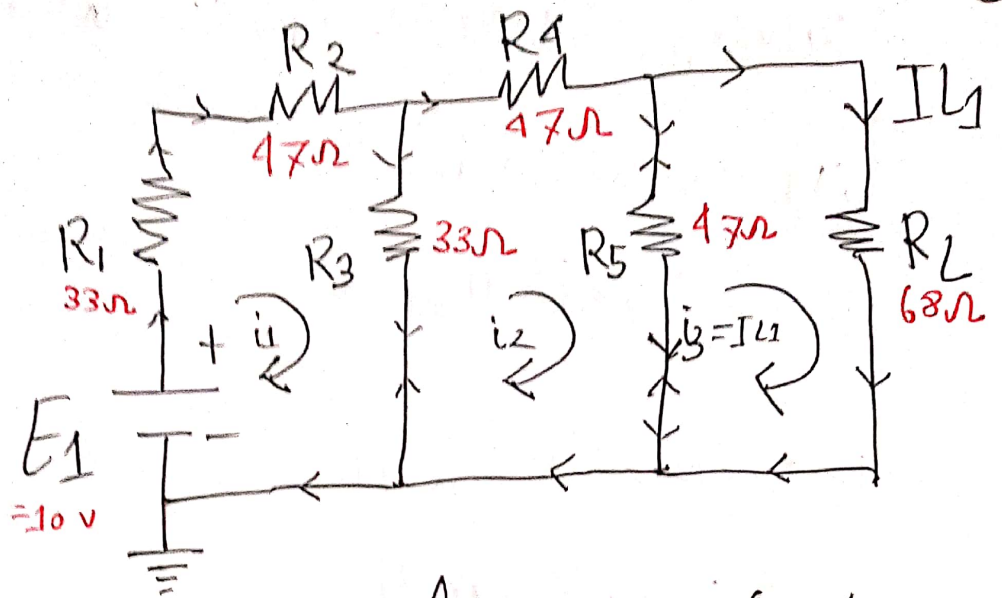 R2
47Ω
R4
47Ω
IL1
R1
33Ω
R3
33Ω
R5
47Ω
RL
68Ω
+
i1
i2
i3=IL1
E1
=10 v
-